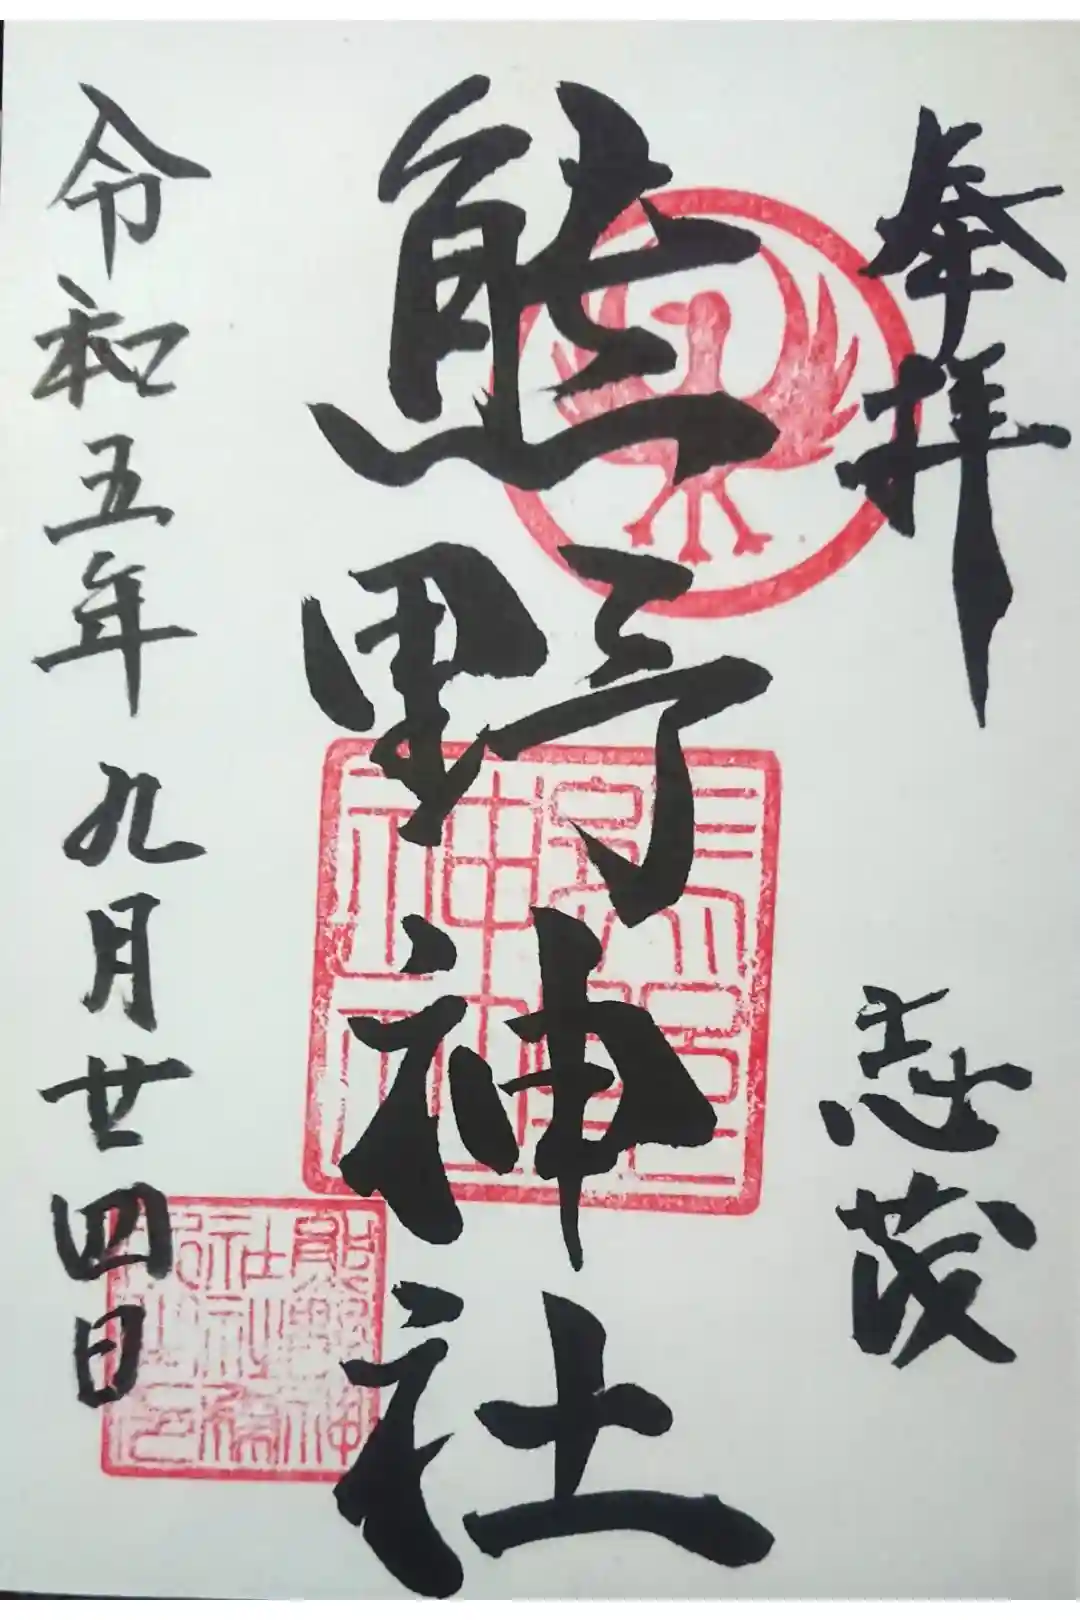 奉拝
志茂
熊野神社
令和五年九月廿四日